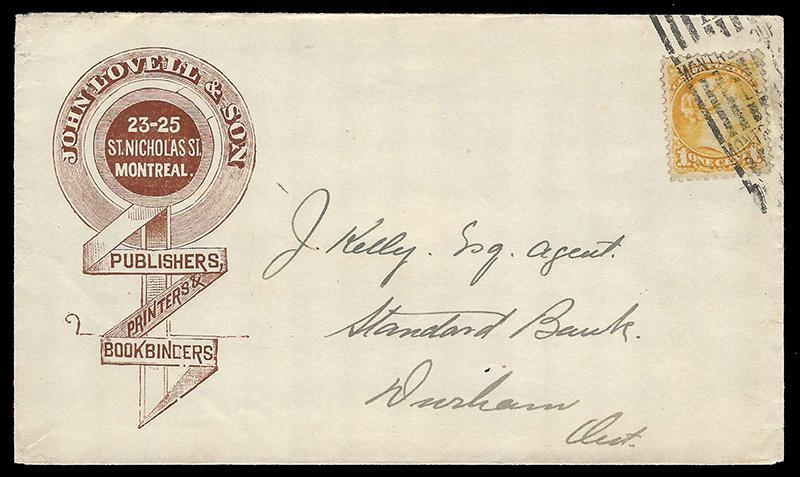 JOHN LOVELL & SON
23-25
ST. NICHOLAS ST.
MONTREAL.
PUBLISHERS,
PRINTERS &
BOOKBINDERS
J. Kelly. Esq. Agent.
Standard Bank.
Durham
Ont.
1 ONE CENT